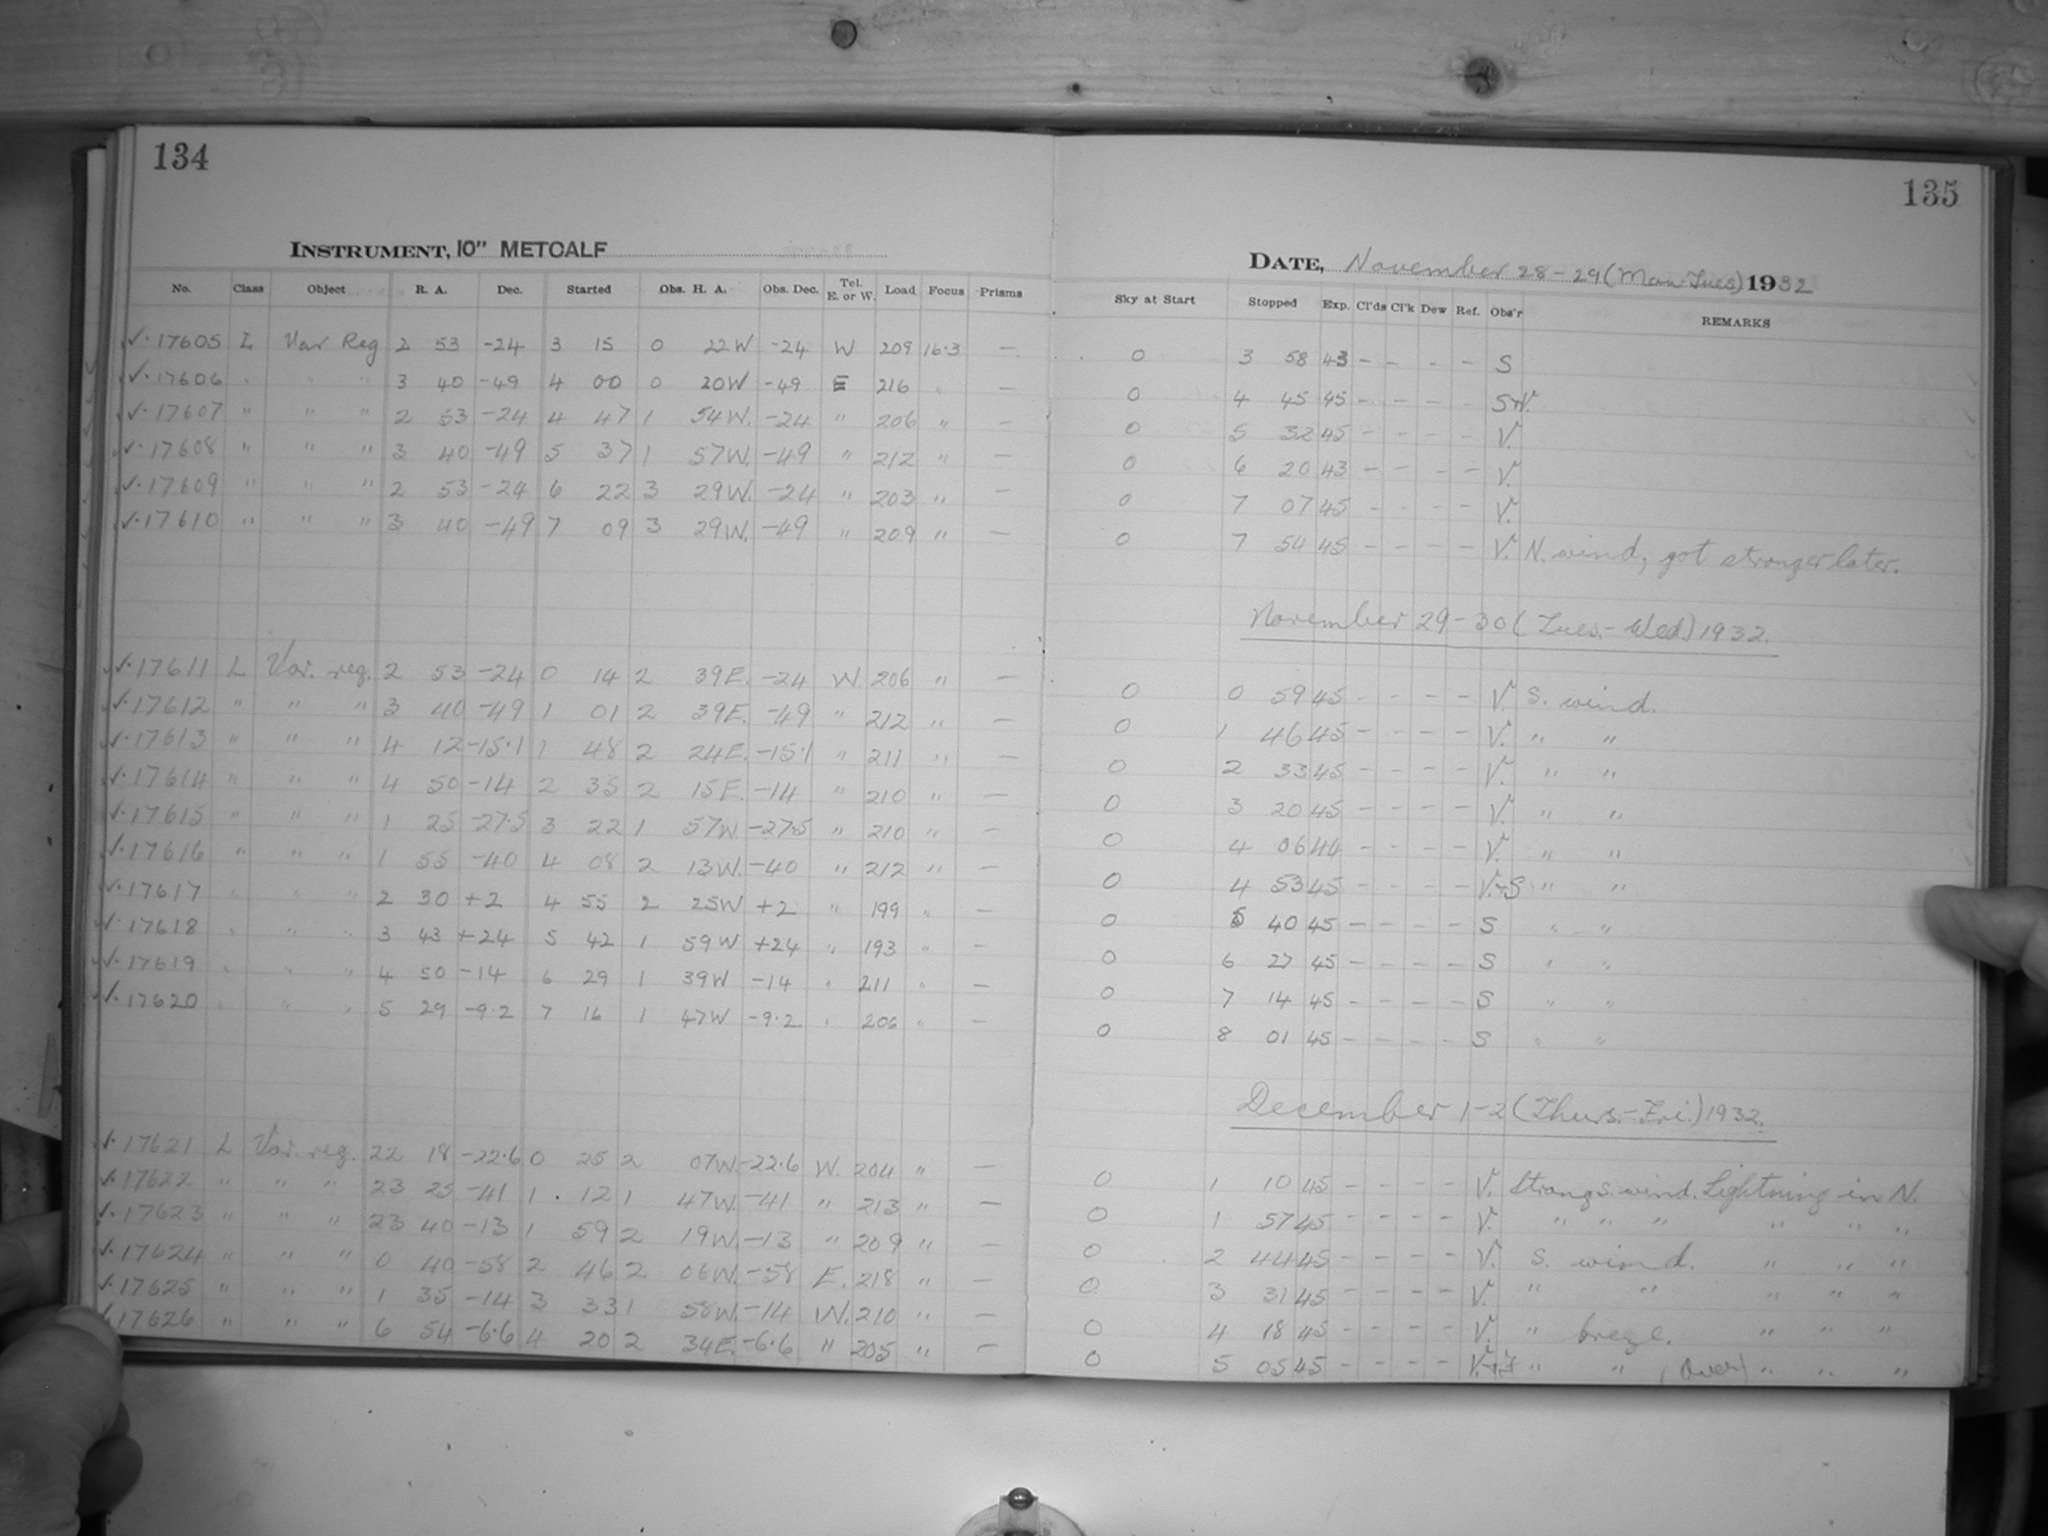 134
INSTRUMENT, 10" METCALF
No. Class Object R. A. Dec. Started Obs. H. A. Obs. Dec. Tel. E. or W. Load Focus Prisms
√·17605 L Var Reg 2 53 -24 3 15 0 22W -24 W 209 16·3 —
√·17606 " " " 3 40 -49 4 00 0 20W -49 E 216 " —
√·17607 " " " 2 53 -24 4 47 1 54W. -24 " 206 " —
√·17608 " " " 3 40 -49 5 37 1 57W. -49 " 212 " —
√·17609 " " " 2 53 -24 6 22 3 29W. -24 " 203 " —
√·17610 " " " 3 40 -49 7 09 3 29W. -49 " 209 " —
√·17611 L Var. reg. 2 53 -24 0 14 2 39E. -24 W. 206 " —
√·17612 " " " 3 40 -49 1 01 2 39E. -49 " 212 " —
√·17613 " " " 4 12 -15·1 1 48 2 24E. -15·1 " 211 " —
√·17614 " " " 4 50 -14 2 35 2 15E. -14 " 210 " —
√·17615 " " " 1 25 -27·5 3 22 1 57W. -27·5 " 210 " —
√·17616 " " " 1 55 -40 4 08 2 13W. -40 " 212 " —
√·17617 " " " 2 30 +2 4 55 2 25W +2 " 199 " —
√·17618 " " " 3 43 +24 5 42 1 59W +24 " 193 " —
√·17619 " " " 4 50 -14 6 29 1 39W -14 " 211 " —
√·17620 " " " 5 29 -9·2 7 16 1 47W -9·2 " 206 " —
√·17621 L Var. reg. 22 18 -22·6 0 25 2 07W -22·6 W. 204 " —
√·17622 " " " 23 25 -41 1 12 1 47W. -41 " 213 " —
√·17623 " " " 23 40 -13 1 59 2 19W. -13 " 209 " —
√·17624 " " " 0 40 -58 2 46 2 06W. -58 E. 218 " —
√·17625 " " " 1 35 -14 3 33 1 58W. -14 W. 210 " —
√17626 " " " 6 54 -6·6 4 20 2 34E. -6·6 " 205 " —
135
DATE, November 28-29 (Mon-Tues) 1932
Sky at Start Stopped Exp. Cl'ds Cl'k Dew Ref. Obs'r REMARKS
0 3 58 43 - - - - S
0 4 45 45 - - - - S+V.
0 5 32 45 - - - - V.
0 6 20 43 - - - - V.
0 7 07 45 - - - - V.
0 7 54 45 - - - - V. N. wind, got stronger later.
November 29-30 (Tues.-Wed.) 1932.
0 0 59 45 - - - - V. S. wind.
0 1 46 45 - - - - V. " "
0 2 33 45 - - - - V. " "
0 3 20 45 - - - - V. " "
0 4 06 44 - - - - V. " "
0 4 53 45 - - - - V.+S " "
0 5 40 45 - - - - S " "
0 6 27 45 - - - - S " "
0 7 14 45 - - - - S " "
0 8 01 45 - - - - S " "
December 1-2 (Thurs.-Fri.) 1932.
0 1 10 45 - - - - V. Strong S. wind. Lightning in N.
0 1 57 45 - - - - V. " " " " " "
0 2 44 45 - - - - V. S. wind. " " "
0 3 31 45 - - - - V. " " " " "
0 4 18 45 - - - - V. " breeze. " " "
0 5 05 45 - - - - " " (Over) " " "